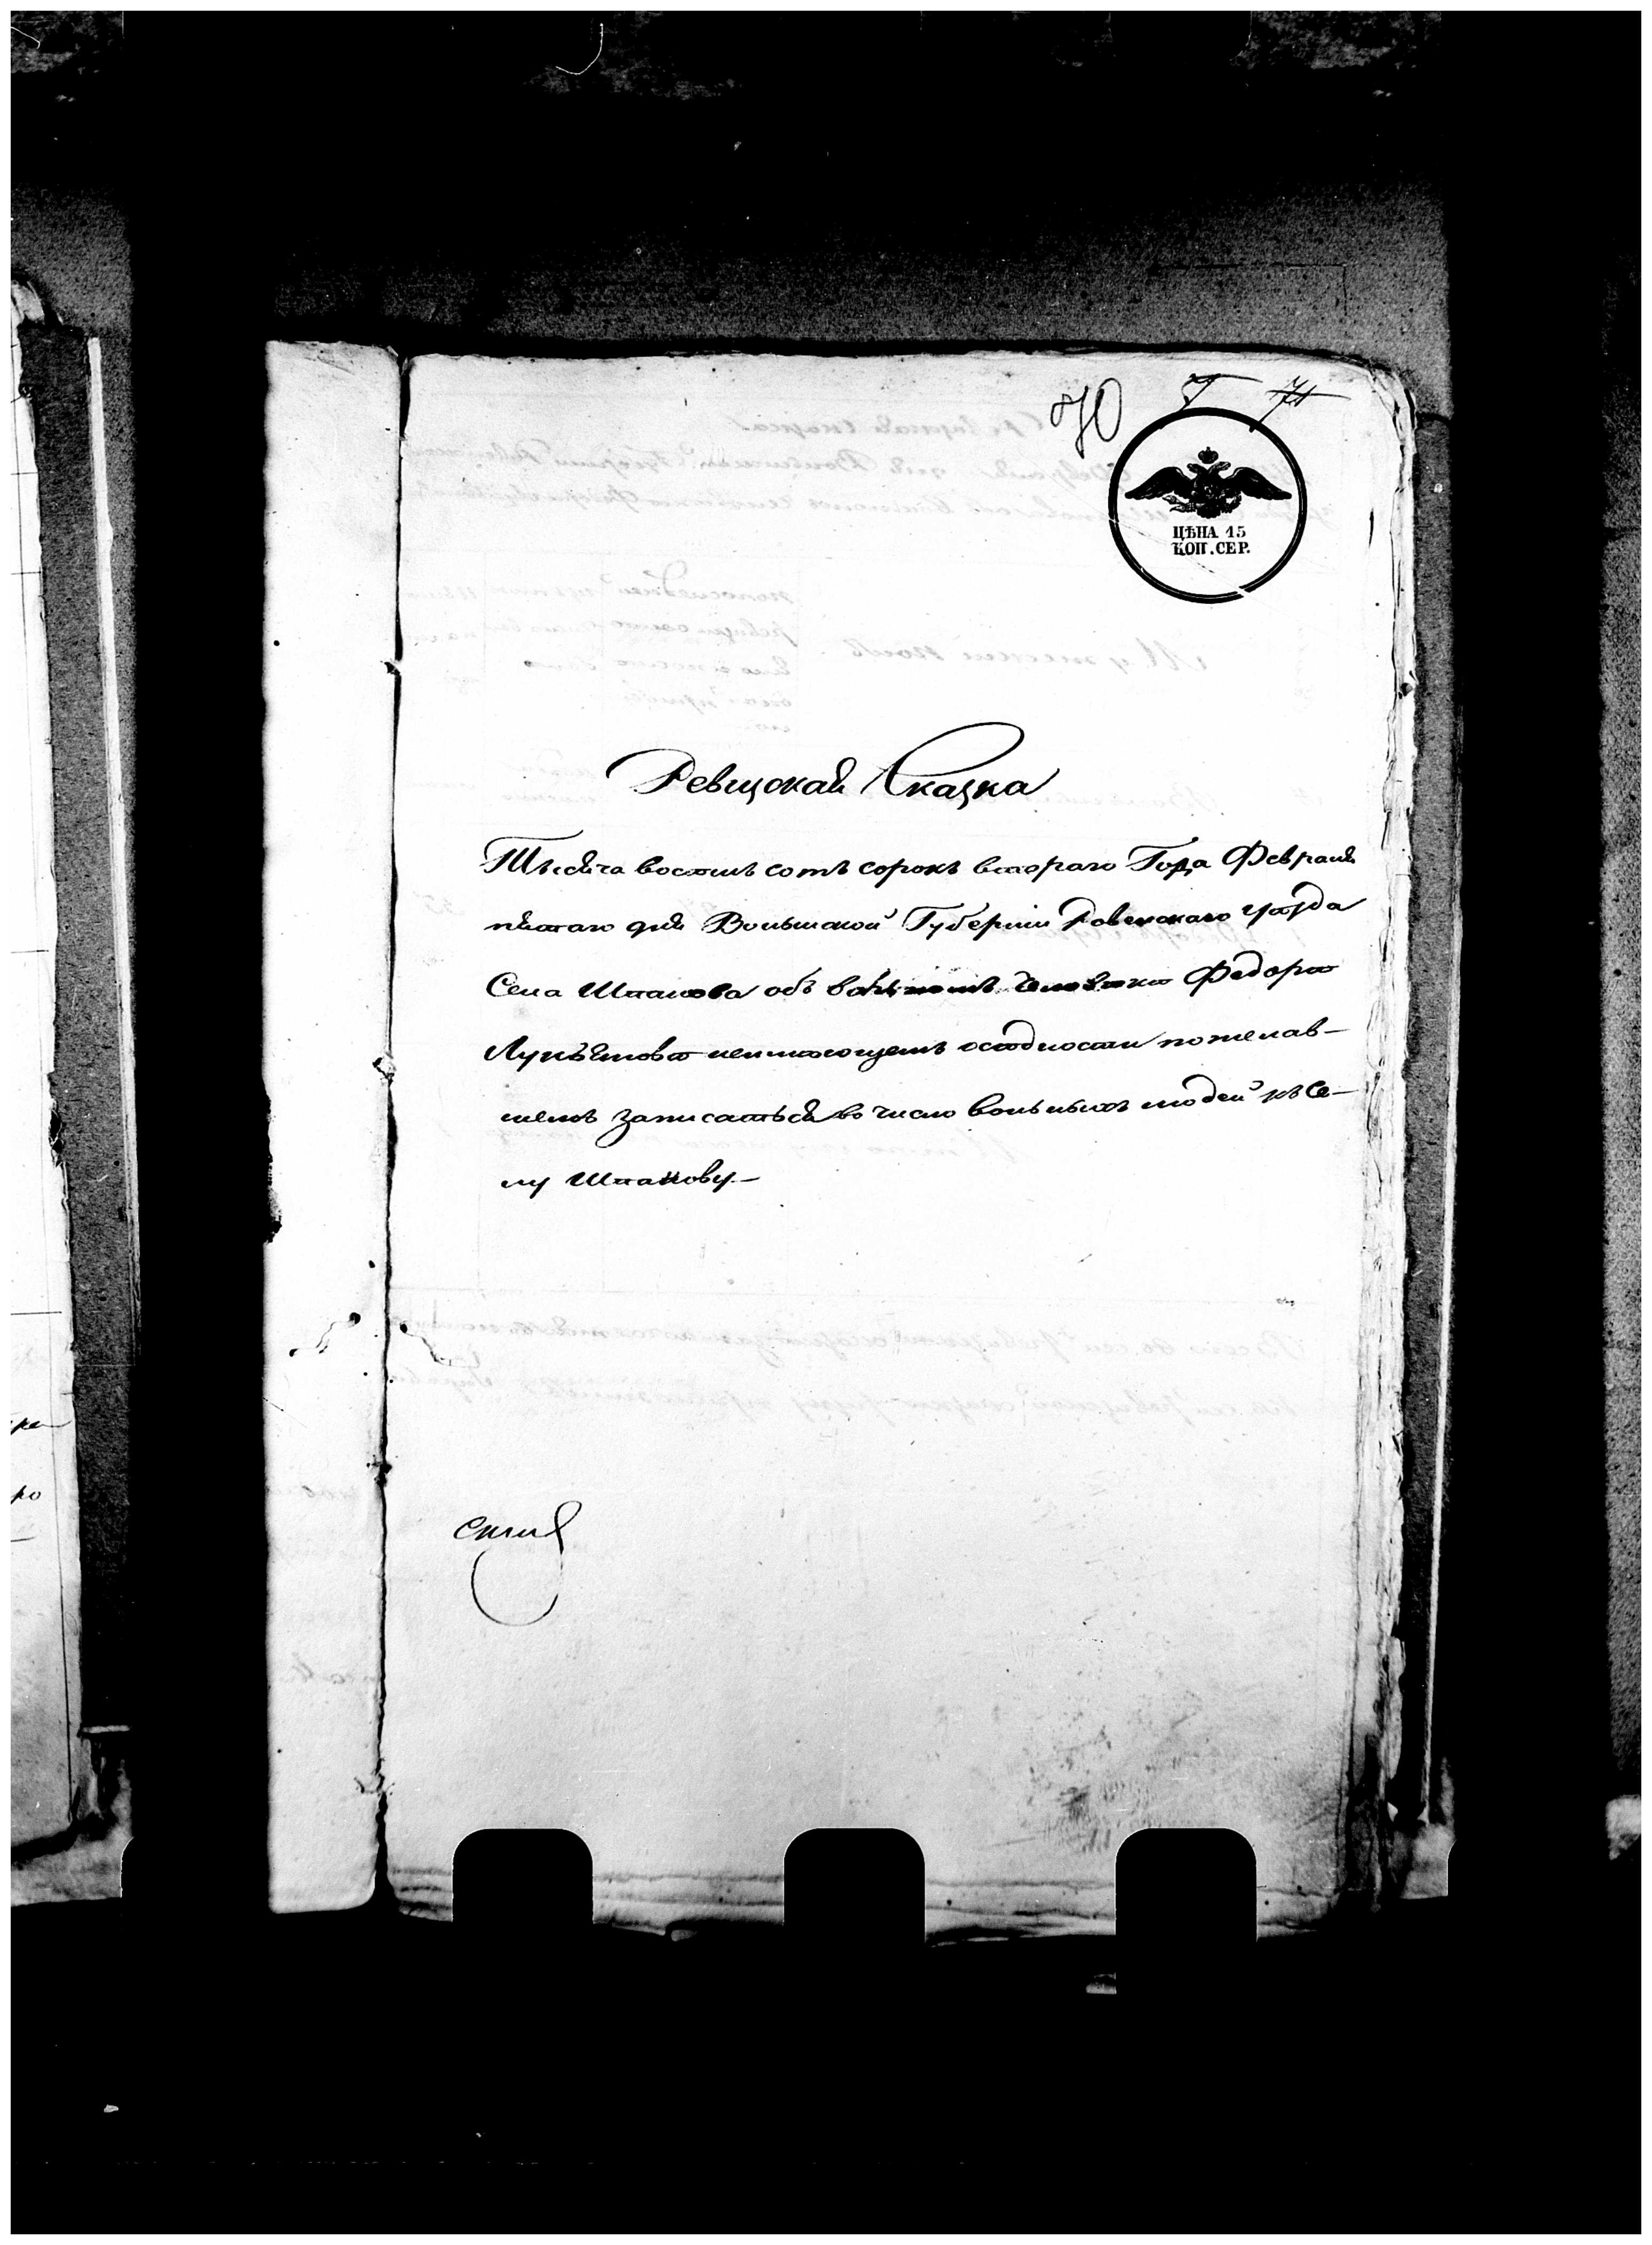 70
71
ЦѢНА 15
КОП. СЕР.
Ревизская Сказка
Тысяча восемь сотъ сорокъ втораго Года Февраля
пятаго дня Волынской Губерніи Ровенскаго уѣзда
Села Шпанова объ вольномъ человѣке Федоре
Лукъянове неимеющемъ оседлости пожелав-
шемъ записаться во число вольныхъ людей къ Се-
лу Шпанову